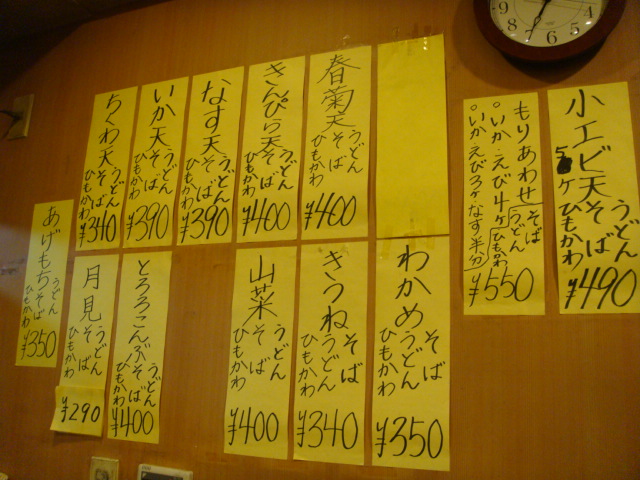 小エビ天
5ヶ
うどん
そば
ひもかわ
¥490
もりあわせ
そば
うどん
ひもかわ
○いか・えび4ヶ
○いか・えび3ヶなす半分
¥550
春菊天
うどん
そば
ひもかわ
¥400
きんぴら天
うどん
そば
ひもかわ
¥400
なす天
うどん
そば
ひもかわ
¥390
いか天
うどん
そば
ひもかわ
¥390
ちくわ天
うどん
そば
ひもかわ
¥340
わかめ
そば
うどん
ひもかわ
¥350
きつね
そば
うどん
ひもかわ
¥340
山菜
うどん
そば
ひもかわ
¥400
とろろこんぶ
うどん
そば
ひもかわ
¥400
月見
うどん
そば
ひもかわ
¥290
あげもち
うどん
そば
ひもかわ
¥350
3
4
5
6
7
8
9